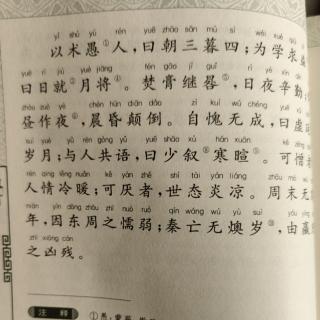 yǐ shù yú rén yuē zhāo sān mù sì wéi xué qiú
以术愚人,曰朝三暮四;为学求
yuē rì jiù yuè jiāng fén gāo jì guǐ rì yè xīn qín
曰日就月将④。焚膏继晷⑤,日夜辛勤
zhòu zuò yè chén hūn diān dǎo zì kuì wú chéng yuē
昼作夜⑥,晨昏颠倒。自愧无成,曰虚
suì yuè yǔ rén gòng yǔ yuē shǎo xù hán xuān kě
岁月;与人共语,曰少叙寒暄。可憎
rén qíng lěng nuǎn kě yàn zhě shì tài yán liáng zhōu mò wú
人情冷暖;可厌者,世态炎凉。周末无
nián yīn dōng zhōu zhī nuò ruò qín wáng wú yù suì yóu yíng
年,因东周之懦弱;秦亡无燠岁,由嬴
zhī xiōng cán
之凶残。
注 释
①愚: